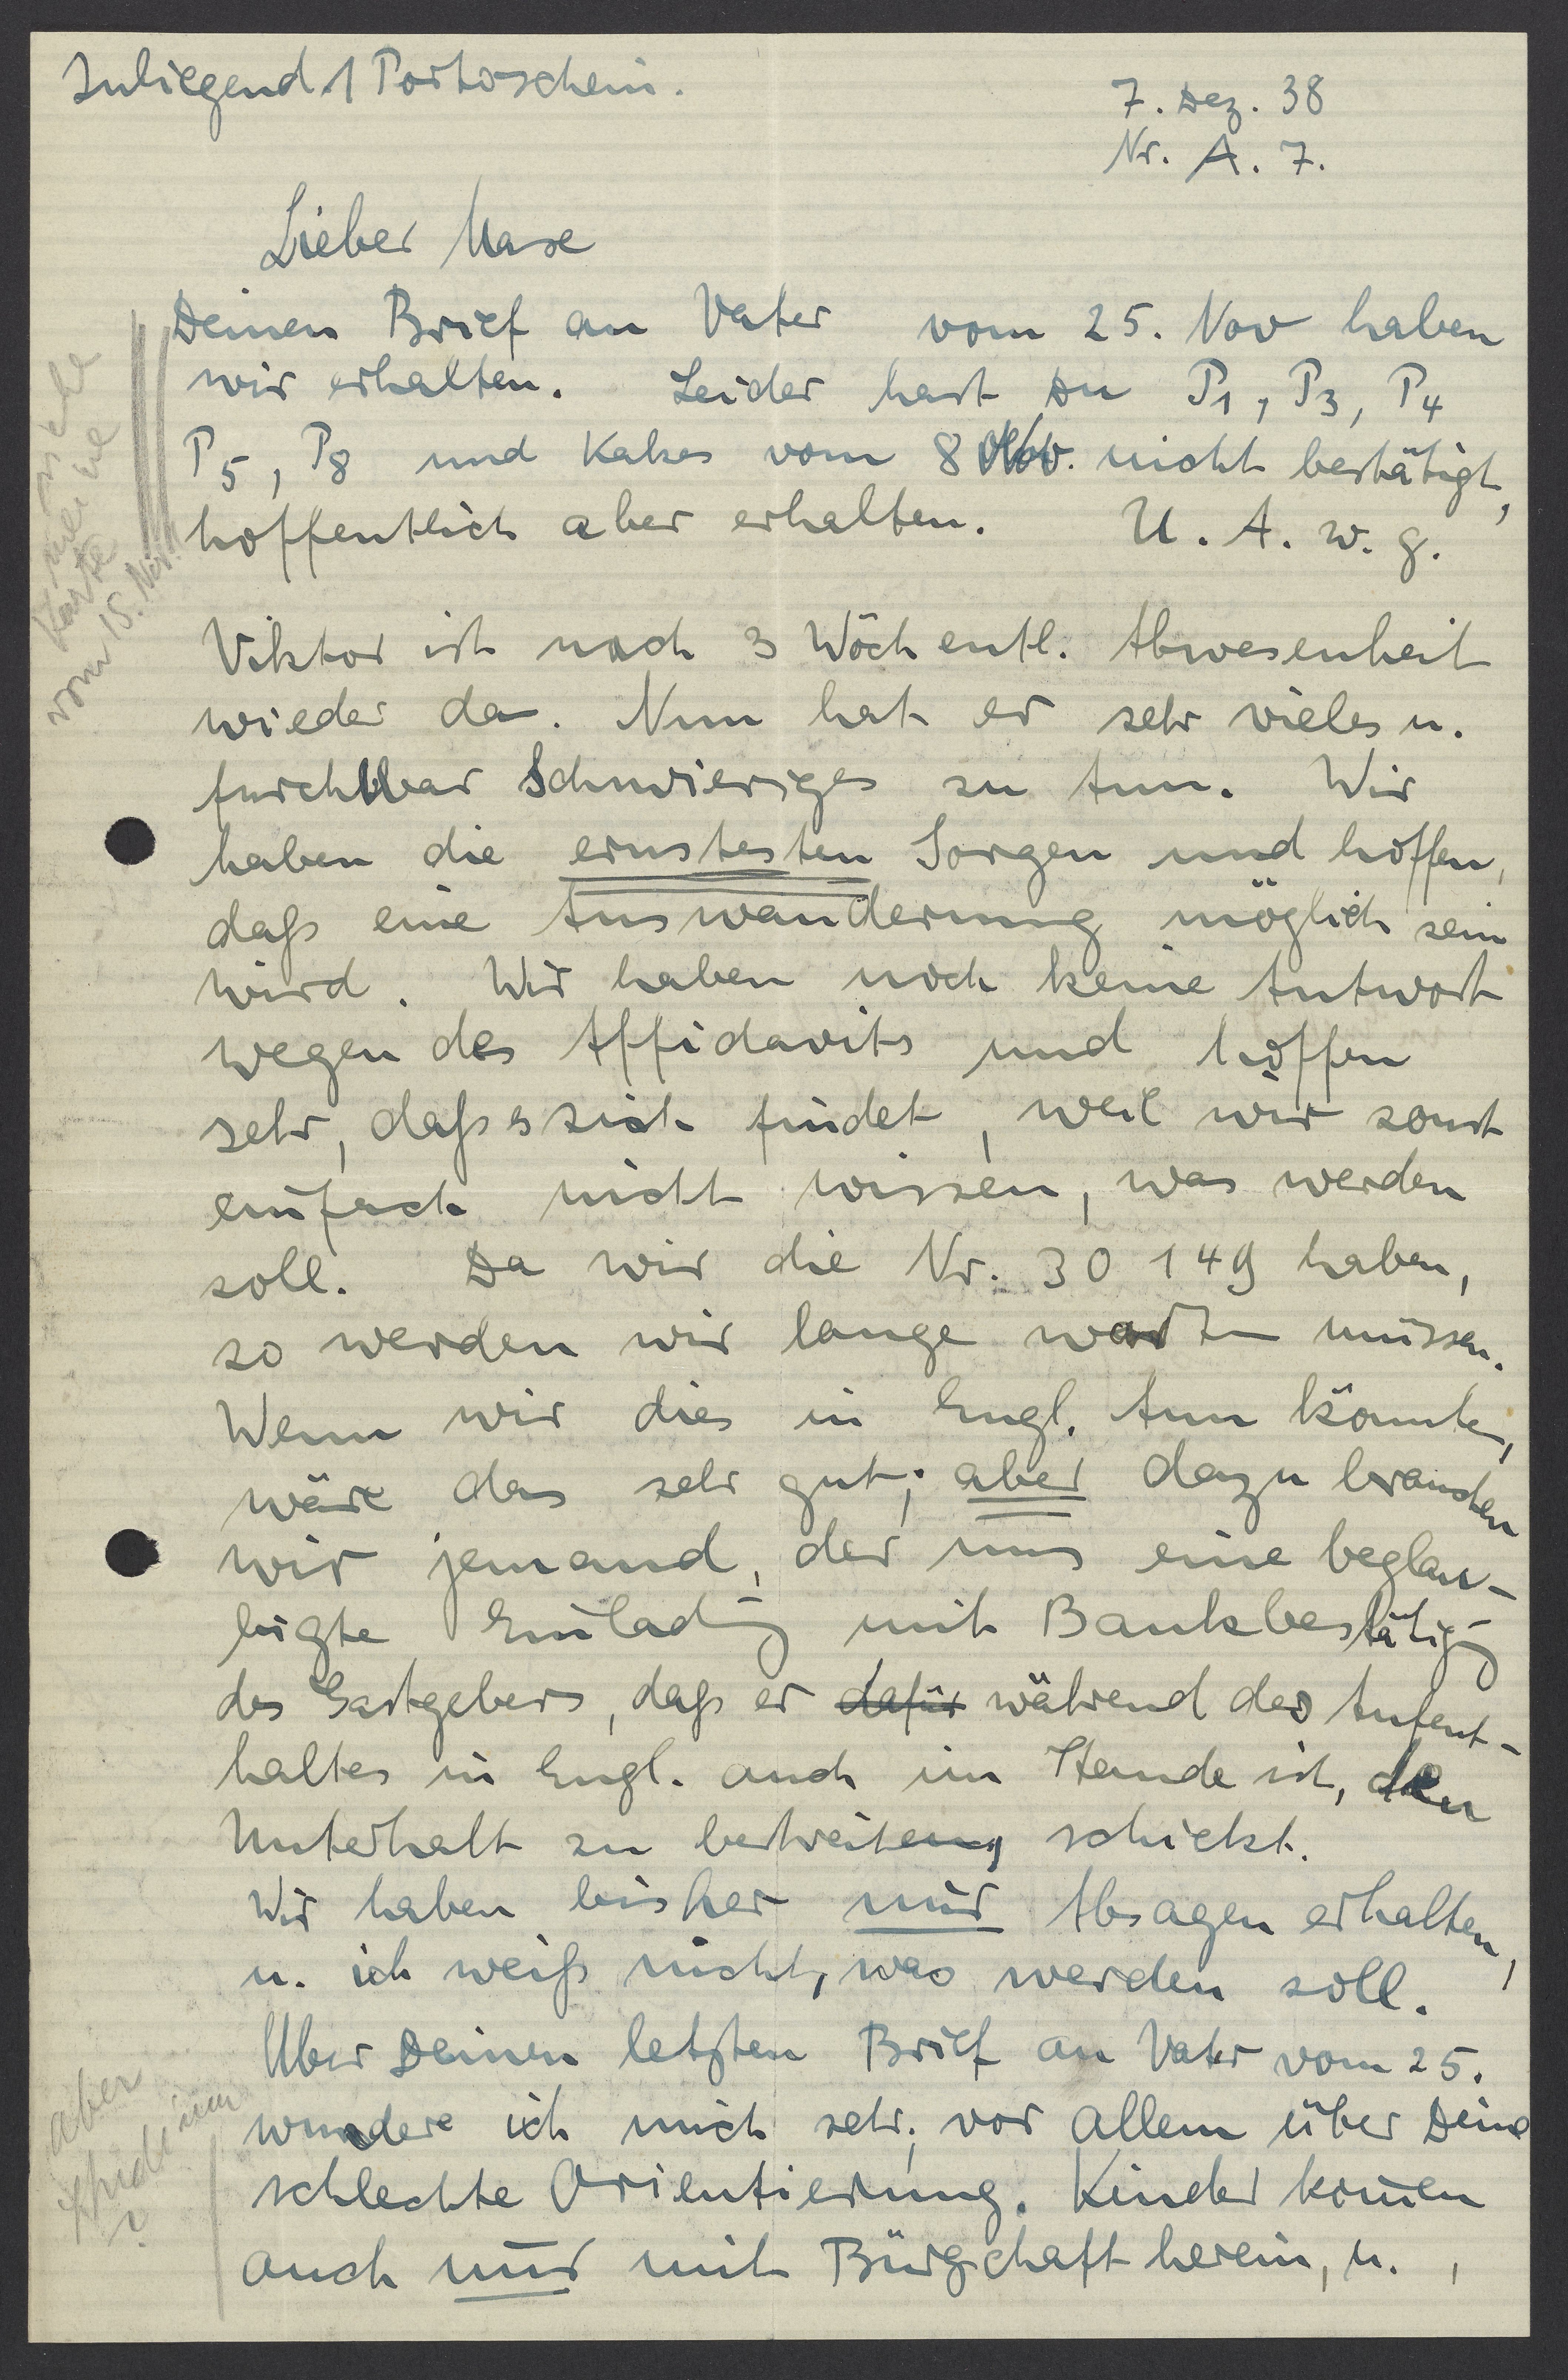 Inliegend 1 Portoschein.
7. Dez. 38
Nr. A. 7.
Lieber Maxe
Deinen Brief an Vater vom 25. Nov haben
wir erhalten. Leider hast Du P1, P3, P4
P5, P8 und Kabes vom 8 Nov. nicht bestätigt,
hoffentlich aber erhalten. U. A. w. g.
siehe
meine
Karte
vom 15. Nov.
Viktor ist nach 3 wöchentl. Abwesenheit
wieder da. Nun hat er sehr vieles u.
furchtbar Schwieriges zu tun. Wir
haben die ernstesten Sorgen und hoffen,
daß eine Auswanderung möglich sein
wird. Wir haben noch keine Antwort
wegen des Affidavits und hoffen
sehr, daß es sich findet, weil wir sonst
einfach nicht wissen, was werden
soll. Da wir die Nr. 30 149 haben,
so werden wir lange warten müssen.
Wenn wir dies in Engl. tun könnten,
wäre das sehr gut; aber dazu brauchen
wir jemand, der uns eine beglau-
bigte Einladg mit Bankbestätigg
des Gastgebers, daß er dafür während des Aufent-
haltes in Engl. auch im Stande ist, den
Unterhalt zu bestreiten, schickt.
Wir haben bisher nur Absagen erhalten,
u. ich weiß nicht, was werden soll.
Über Deinen letzten Brief an Vater vom 25.
wundere ich mich sehr, vor allem über Deine
schlechte Orientierung. Kinder kom̄en
auch nur mit Bürgschaft herein, u.
aber